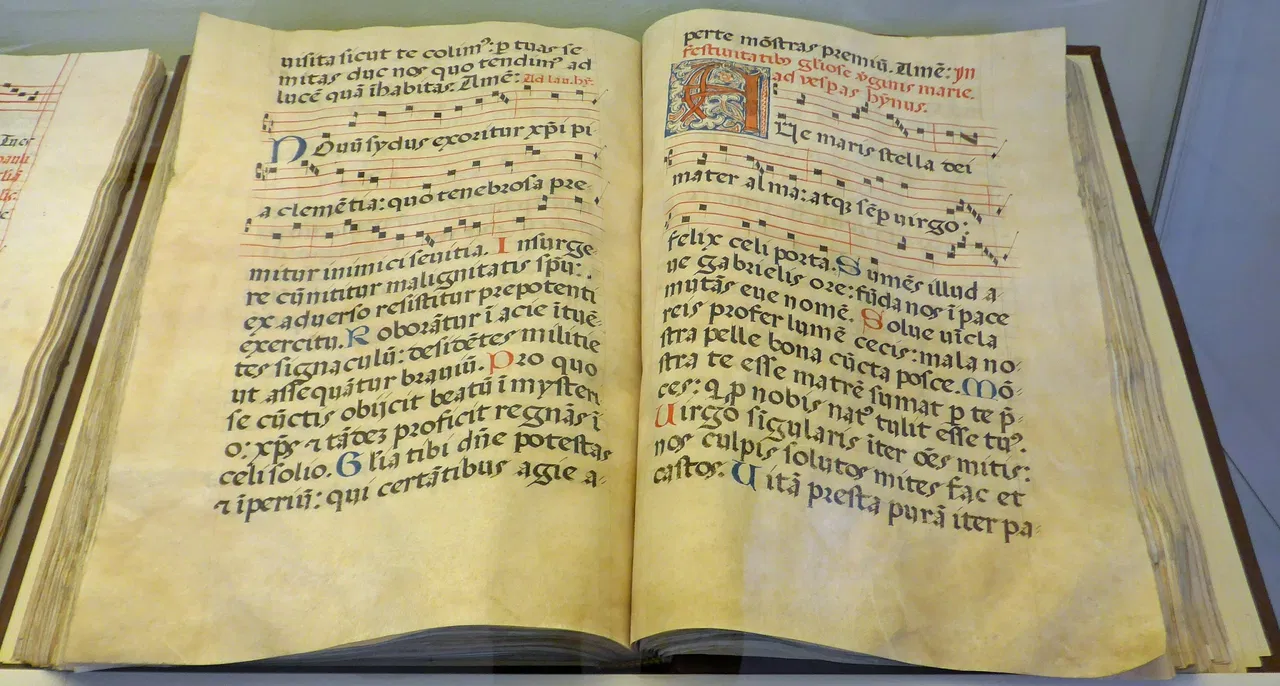 uisita sicut te colimꝰ: ꝑ tuas se
mitas duc nos quo tendimꝰ ad
lucē quā īhabitas. Amē: Ad lau. hȳ.
Nouū sydus exoritur xp̄i pi
a clemētia: quo tenebrosa pre-
mitur inimici seuitia. Insurge
re cū nititur malignitatis sp̄u: .
ex aduerso resistitur prepotenti
exercitu. Roborātur ī acie ītuē-
tes signaculū: desidētes militie
ut assequātur brauiū. Pro quo
se cūctis obijcit beatū ī mysteri
o: xp̄s ⁊ tādez proficit regnās ī
celi solio. Gl̄ia tibi dn̄e potestas
⁊ īperiū: qui certātibus agie a-
perte mōstras premiū. Amē: In
festiuitatibꝰ gliose v̄ginis marie.
ad vesp̄as hȳnus.
AUe maris stella dei
mater alma: atqꝫ sēꝑ uirgo:
felix celi porta. Sumēs illud a-
ue gabrielis ore: fūda nos ī pace
mutās eue nomē. Solue uīcla
reis profer lumē cecis: mala no-
stra pelle bona cūcta posce. Mō-
stra te esse matrē sumat ꝑ te p̄-
ces: q̄ ꝓ nobis natꝰ tulit esse tuꝰ.
Uirgo sīgularis īter oēs mitis:
nos culpis solutos mites fac et
castos. Uitā presta purā iter pa-